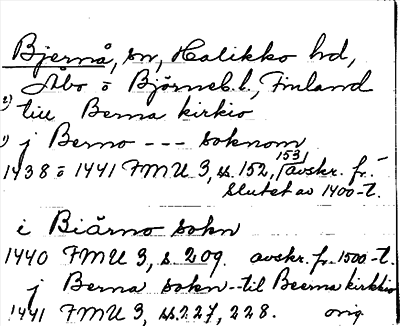 Bjernå, sn, Halikko hd,
Åbo o Björneb. l., Finland
2) till Berna kirkio
1) j Berno --- soknom
1438 o 1441 FMU 3, ss. 152, 153, avskr. fr.
slutet av 1400-t.
i Biärno sokn
1440 FMU 3, s. 209. avskr. fr. 1500-t.
j Berna sokn - til Beerna kirkio
1441 FMU 3, ss. 227, 228. orig